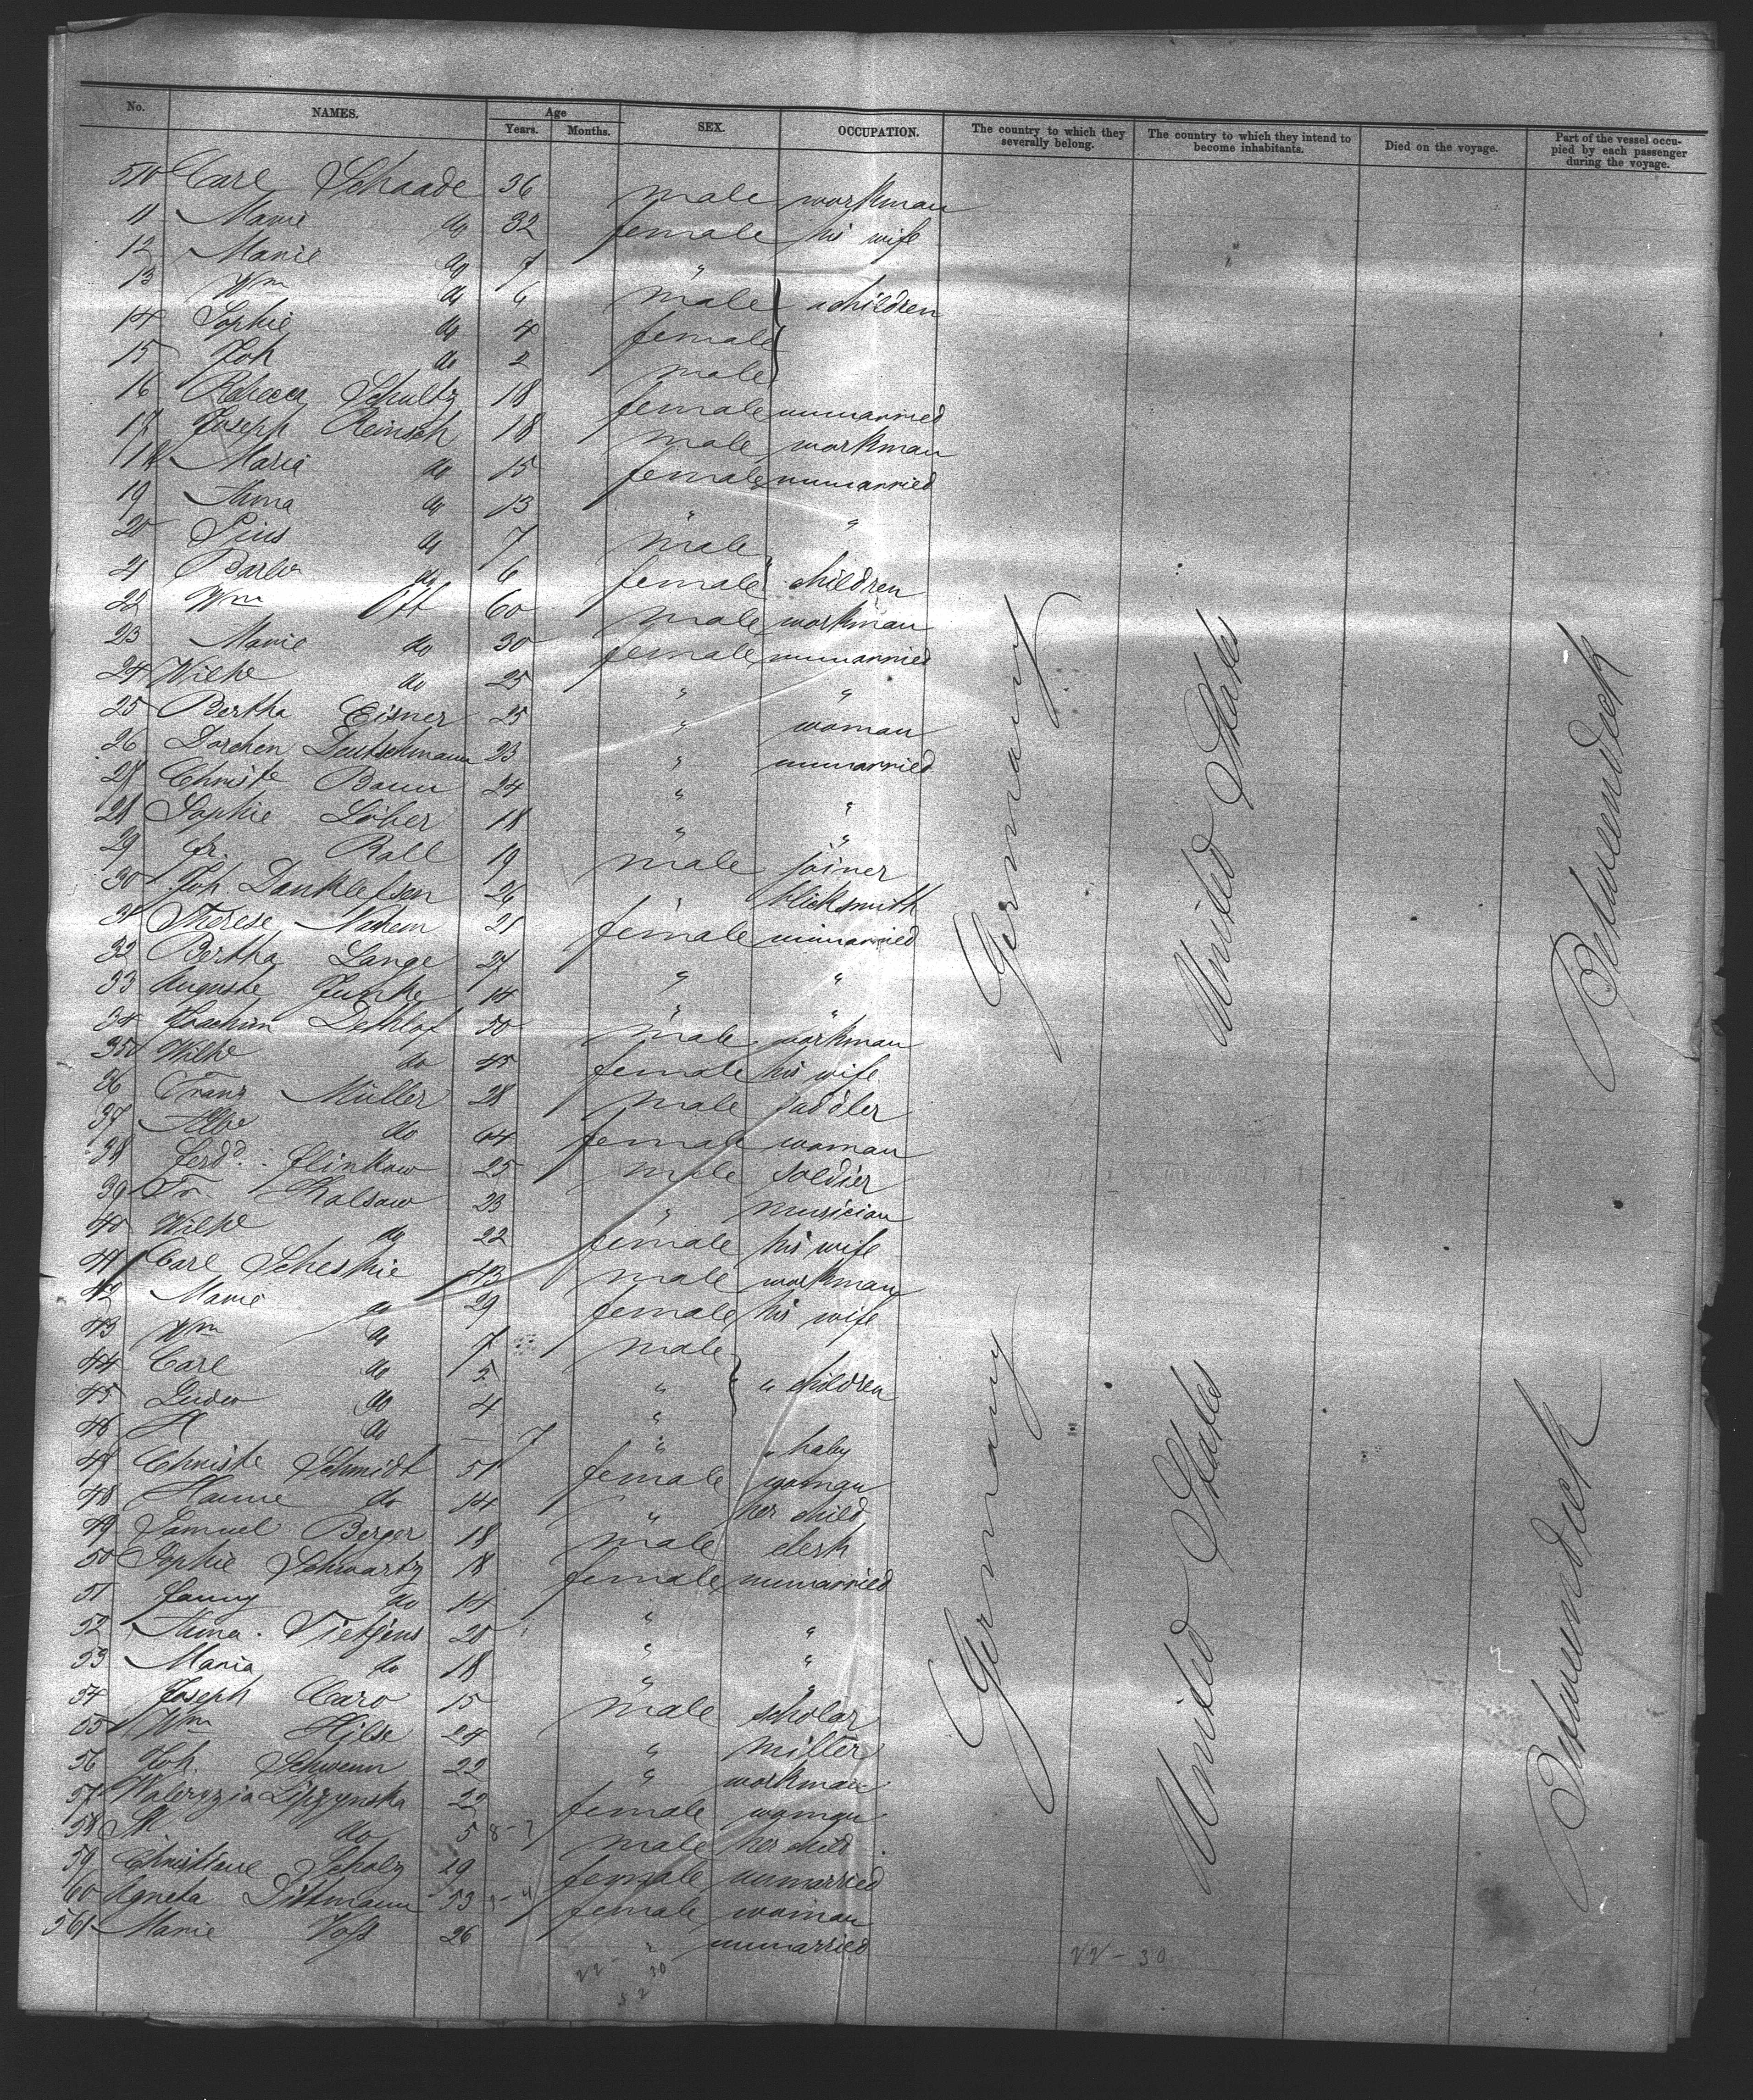 No. NAMES. Age Years. Months. SEX. OCCUPATION. The country to which they severally belong. The country to which they intend to become inhabitants. Died on the voyage. Part of the vessel occupied by each passenger during the voyage.
510 Carl Schaade 36 male workman
11 Marie do 32 female his wife
12 Marie do 7 "
13 Wm do 6 male " children
14 Sophie do 4 female
15 Joh do 2 male
16 Rebecca Schultz 18 female unmarried
17 Joseph Reinsch 18 male workman
18 Maria do 15 female unmarried
19 Anna do 13 " "
20 Pius do 7 male
21 Barb do 6 female children
22 Wm Ott 60 male workman
23 Marie do 30 female unmarried
24 Wilhe do 25 " "
25 Bertha Eisner 25 " woman
26 Dorchen Deutschmann 23 " unmarried
27 Christe Baun 24 " "
28 Sophie Löher 18 " "
29 Fr. Rall 19 male joiner
30 Joh. Dankletsen 26 " blicksmith
31 Therese Nahem 21 female unmarried
32 Bertha Lange 27 " "
33 Auguste Funke 14 " "
34 Joachim Dethlof 50 male workman
35 Wilhe do 45 female his wife
36 Franz Müller 28 male saddler
37 Albe do 64 female woman
38 Ferdd. Flinkow 25 male soldier
39 Fr. Kalsow 23 " musician
40 Wilhe do 22 female his wife
41 Carl Scheskie 43 male workman
42 Marie do 29 female his wife
43 Wm do 7 male
44 Carl do 5 " " children
45 Ludw do 4 "
46 H do — 7 " " baby
47 Christe Schmidt 51 female woman
48 Hanne do 14 " her child
49 Samuel Berger 18 male clerk
50 Sophie Schwartz 18 female unmarried
51 Fanny do 14 " "
52 Anna Tietjens 20 " "
53 Maria do 18 " "
54 Joseph Caro 15 male scholar
55 Wm Hilse 24 " miller
56 Joh. Schwenn 22 " workman
57 Waleryzia Lipzynska 22 female woman
58 St do 5 male her child
59 Christiane Scholz 29 female unmarried
60 Agneta Dittmann 53 female woman
561 Marie Voß 26 " unmarried
Germany United States Betweendeck
Germany United States Betweendeck
22 - 30
22 30
52